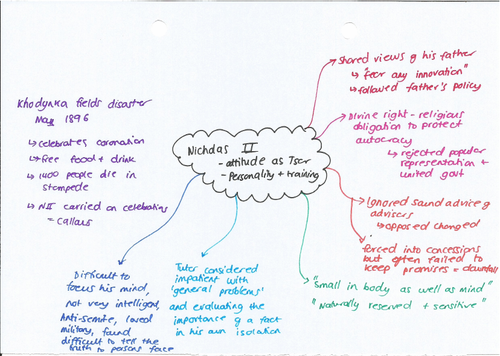 Nicholas II
- attitude as Tsar
- Personality + training
Khodynka fields disaster
May 1896
↳ celebrates coronation
↳ free food + drink
↳ 1400 people die in
stampede
↳ NII carried on celebrating
= callous
Shared views of his father
↳ "fear any innovation"
↳ followed father's policy
Divine right - religious
obligation to protect
autocracy
↳ rejected popular
representation +
united govt
Ignored sound advice of
advisors
↳ opposed changed
forced into concessions
but often failed to
keep promises = downfall
"Small in body as well as mind"
"Naturally reserved + sensitive"
Tutor considered
impatient with
'general problems'
and evaluating the
importance of a fact
in his own isolation
Difficult to
focus his mind,
not very intelligent,
Anti-semite, loved
military, found
difficult to tell the
truth to persons face